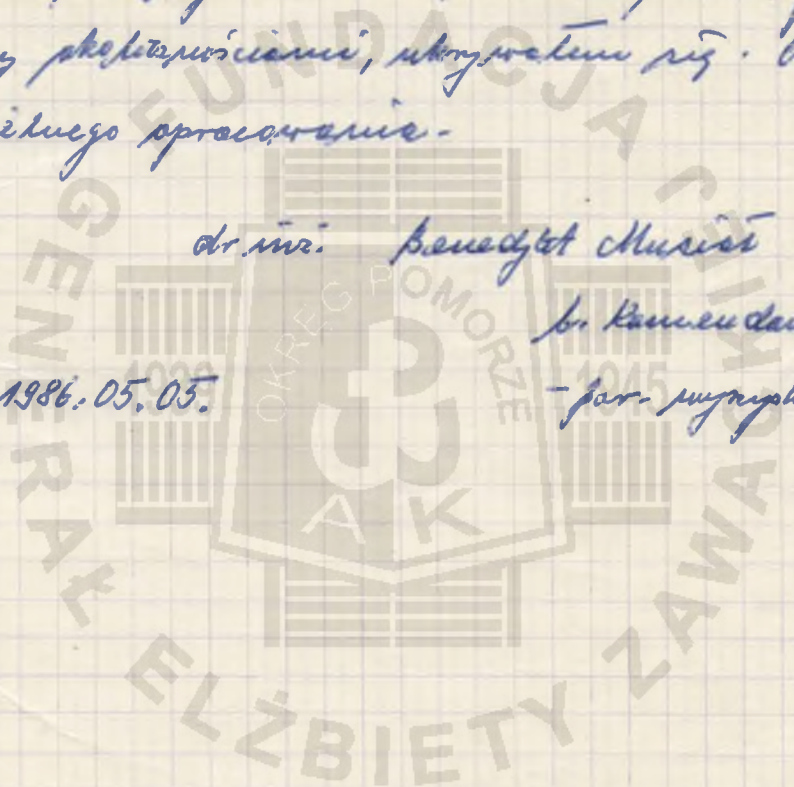 okolicznościami, ukrywałem się.
opracowania.
dr. inż. Benedykt Musioł
b. Komendan
1986.05.05.
- par.
FUNDACJA GENERAŁ ELŻBIETY ZAWACKIEJ
OKRĘG POMORZE
1939 1945
AK